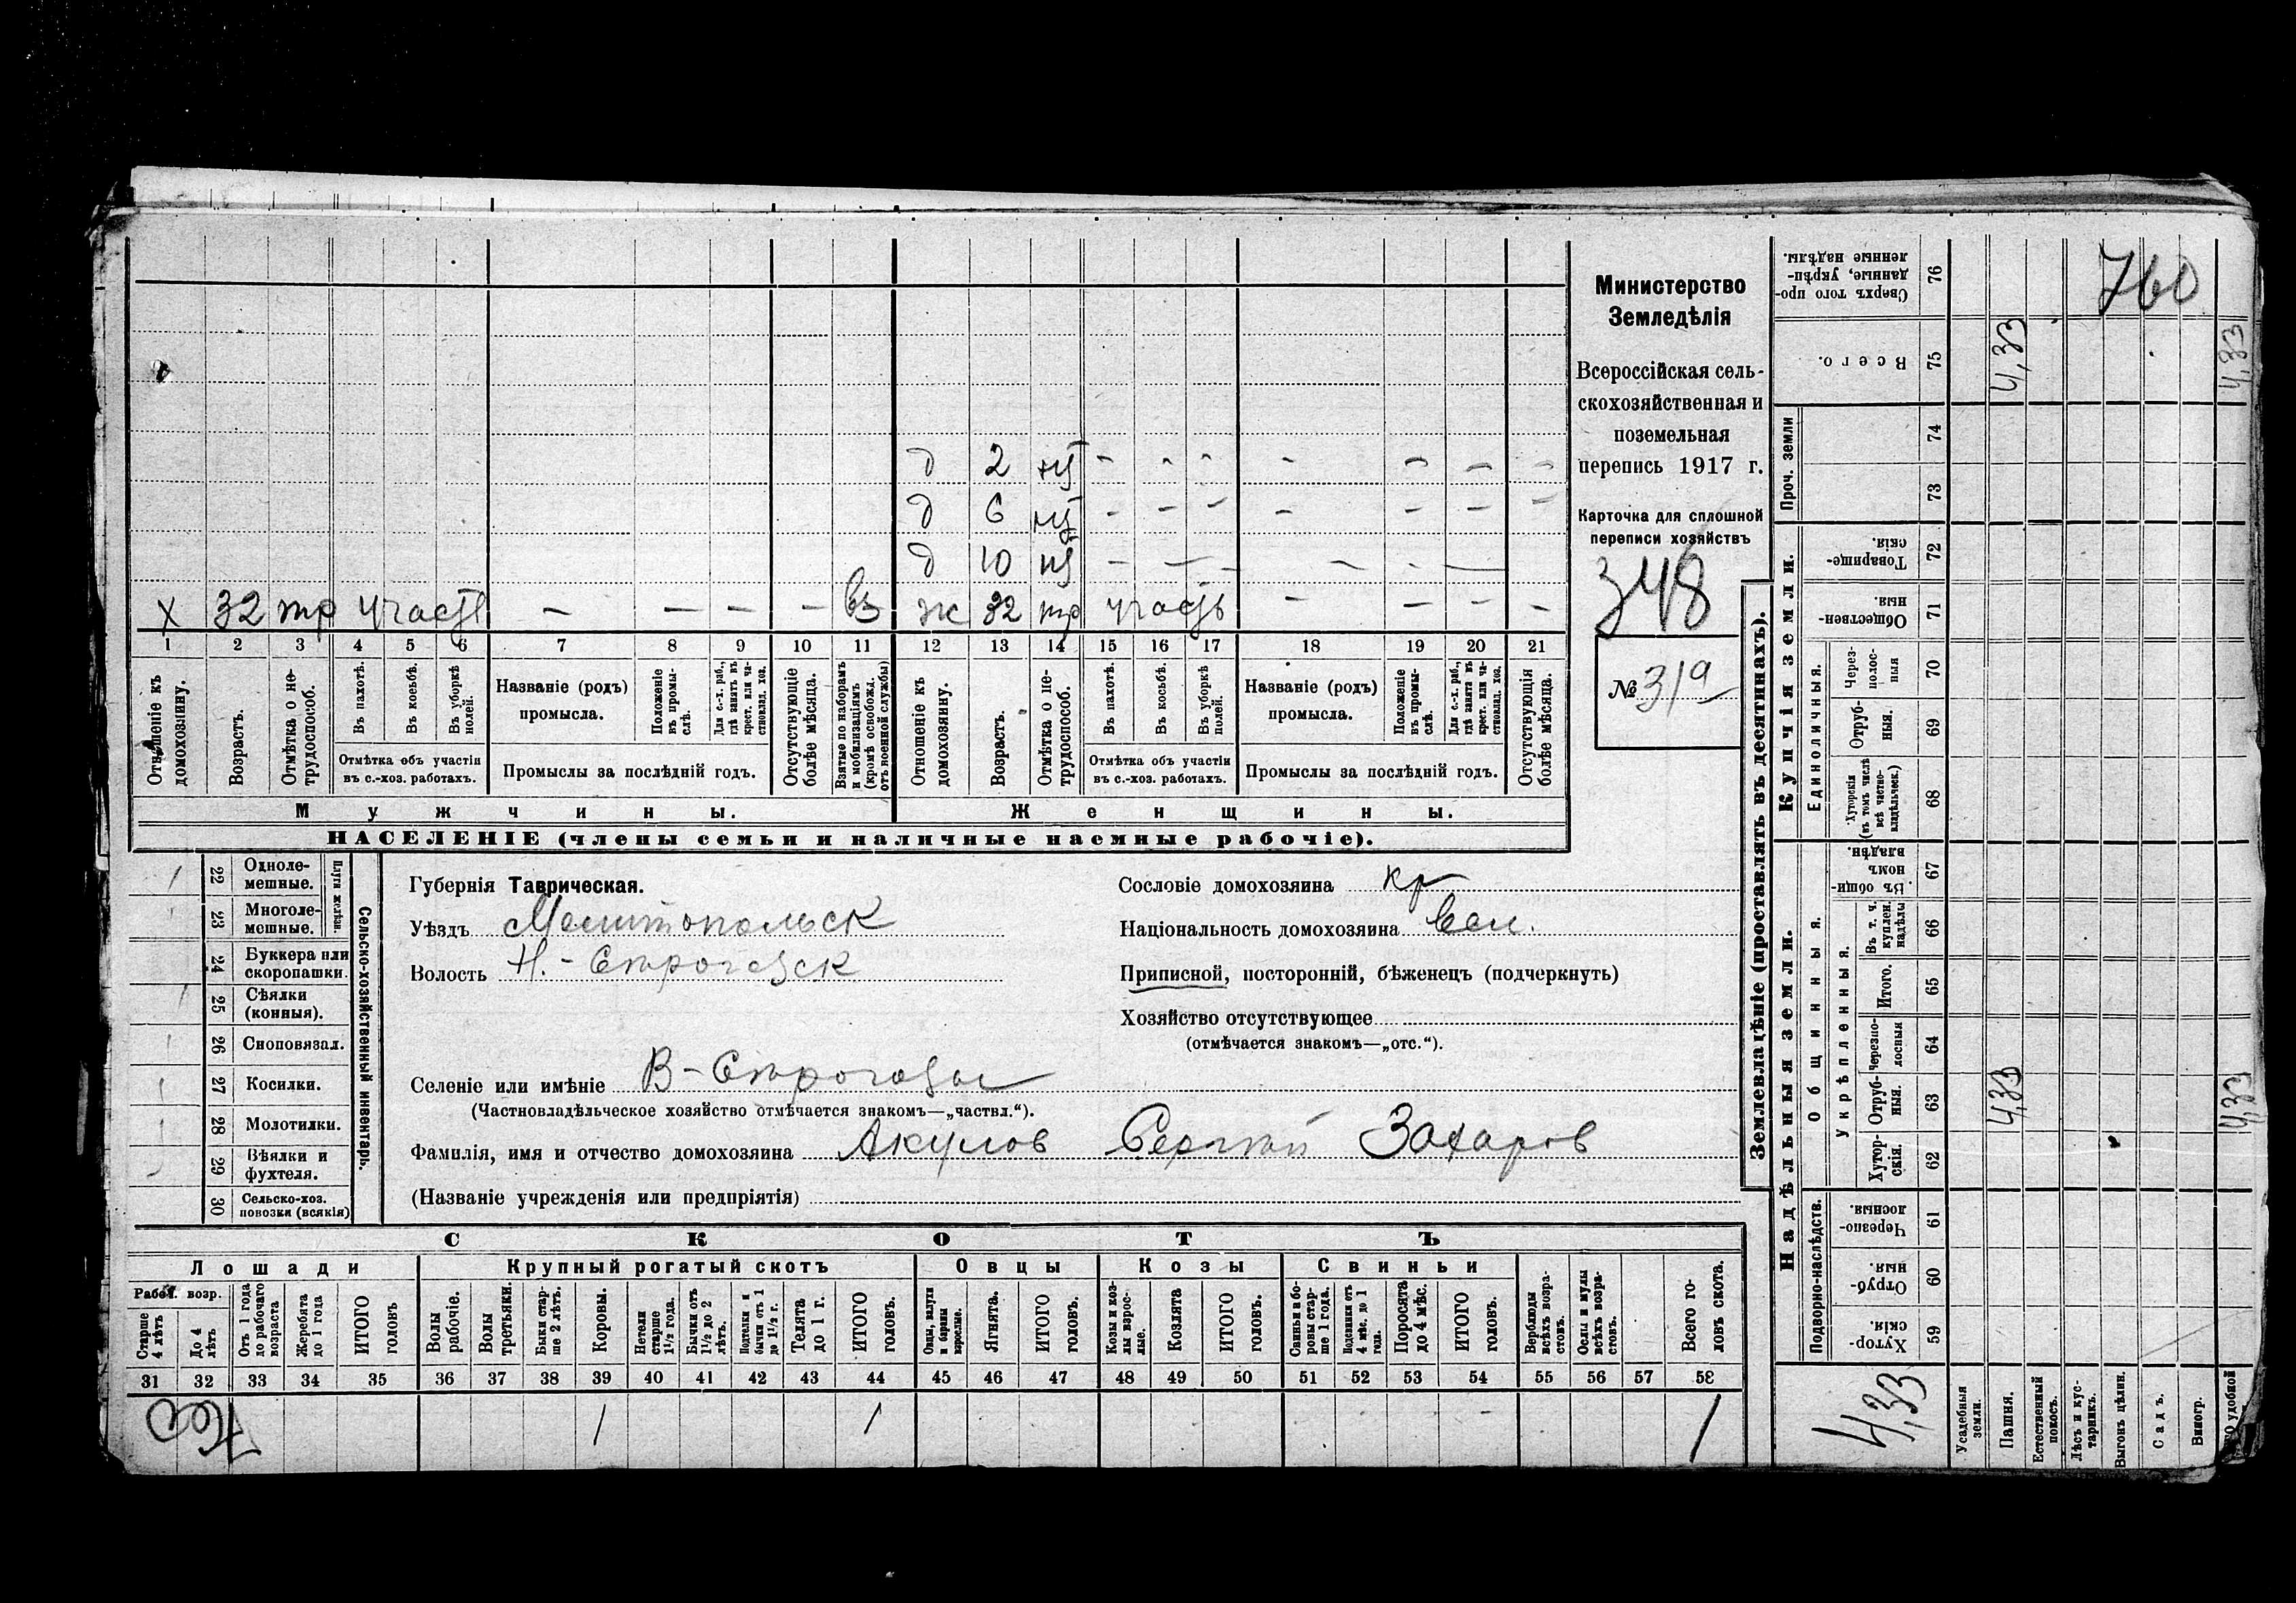 д 2 нт - - - - - - -
д 6 нт - - - - - - -
д 10 нт - - - - - -
х 32 тр участ - - - - вз ж 32 тр участь - - - -
1 2 3 4 5 6 7 8 9 10 11 12 13 14 15 16 17 18 19 20 21
Отношеніе къ домохозяину.
Возрастъ.
Отмѣтка о не-трудоспособ.
Въ пахотѣ.
Въ косьбѣ.
Въ уборкѣ полей.
Отмѣтка объ участіи
въ с.-хоз. работахъ.
Названіе (родъ)
промысла.
Положеніе въ промы-слѣ.
Для с.-х. раб., гдѣ занятъ въ крест. или ча-стновлад. хоз.
Промыслы за послѣдній годъ.
Отсутствующіе болѣе мѣсяца.
Взятые по наборамъ и мобилизаціямъ (кромѣ освобожд. отъ военной службы)
Отношеніе къ домохозяину.
Возрастъ.
Отмѣтка о не-трудоспособ.
Въ пахотѣ.
Въ косьбѣ.
Въ уборкѣ полей.
Отмѣтка объ участіи
въ с.-хоз. работахъ.
Названіе (родъ)
промысла.
Положеніе въ промы-слѣ.
Для с.-х. раб., гдѣ занята въ крест. или ча-стновлад. хоз.
Промыслы за послѣдній годъ.
Отсутствующія болѣе мѣсяца.
Мужчины. Женщины.
НАСЕЛЕНІЕ (члены семьи и наличные наемные рабочіе).
Министерство
Земледѣлія
Всероссійская сель-
скохозяйственная и
поземельная
перепись 1917 г.
Карточка для сплошной
переписи хозяйствъ
348
№ 319
1 22 Одноле-мешные.
23 Многоле-мешные.
Плуги желѣзн.
24 Буккера или скоропашки.
25 Сѣялки (конныя).
26 Сноповязал.
27 Косилки.
28 Молотилки.
29 Вѣялки и фухтеля.
30 Сельско-хоз. повозки (всякія)
Сельско-хозяйственный инвентарь.
Губернія Таврическая.
Уѣздъ Мелитопольск
Волость Н.-Строгозск
Сословіе домохозяина кр
Національность домохозяина
Приписной, посторонній, бѣженецъ (подчеркнуть)
Хозяйство отсутствующее
(отмѣчается знакомъ—„отс.“).
Селеніе или имѣніе В-Строгозы
(Частновладѣльческое хозяйство отмѣчается знакомъ—„частвл.“).
Фамилія, имя и отчество домохозяина Акулов Сергѣй Захаров
(Названіе учрежденія или предпріятія)
СКОТЪ
Лошади Крупный рогатый скотъ Овцы Козы Свиньи
Рабоч. возр.
Старше 4 лѣтъ
До 4 лѣтъ
Отъ 1 года до рабочаго возраста
Жеребята до 1 года
ИТОГО головъ
Волы рабочіе.
Волы третьяки.
Быки стар-ше 2 лѣтъ.
Коровы.
Нетели старше 1½ года.
Бычки отъ 1½ до 2 лѣтъ.
Подтелки и бычки отъ 1 до 1½ г.
Телята до 1 г.
ИТОГО головъ.
Овцы, валухи и бараны взрослые.
Ягнята.
ИТОГО головъ.
Козы и коз-лы взрос-лые.
Козлята
ИТОГО головъ.
Свиньи и бо-ровы стар-ше 1 года.
Подсвинки отъ 4 мѣс. до 1 года.
Поросята до 4 мѣс.
ИТОГО головъ.
Верблюды всѣхъ возра-стовъ.
Ослы и мулы всѣхъ возра-стовъ.
Всего го-ловъ скота.
31 32 33 34 35 36 37 38 39 40 41 42 43 44 45 46 47 48 49 50 51 52 53 54 55 56 57 58
760 1 1 1
Землевладѣніе (проставлять въ десятинахъ).
Надѣльныя земли. Купчія земли.
Проч. земли
Подворно-наслѣдств.
Общинныя.
Укрѣпленныя.
Единоличныя.
Сверхъ того про-данные, укрѣп-ленные надѣлы. 76
Всего. 75
74
73
Товарище-скія. 72
Обществен-ныя. 71
Через-полос-ныя 70
Отруб-ныя. 69
Хуторскія (въ томъ числѣ всѣ частно-владѣльческ.) 68
Въ общи-номъ владѣн. 67
Въ т. ч. куплен. надѣлы 66
Итого. 65
Черезпо-лосныя 64
Отруб-ныя. 63
Хутор-скія. 62
Черезпо-лосныя. 61
Отруб-ныя. 60
Хутор-скія. 59
760
4,33
4,33
4,33
4,33
4,33
Усадебныя земли.
Пашня.
Естественный покосъ.
Лѣсъ и кус-тарникъ.
Выгонъ цѣлин.
Садъ.
Виногр.
удобной